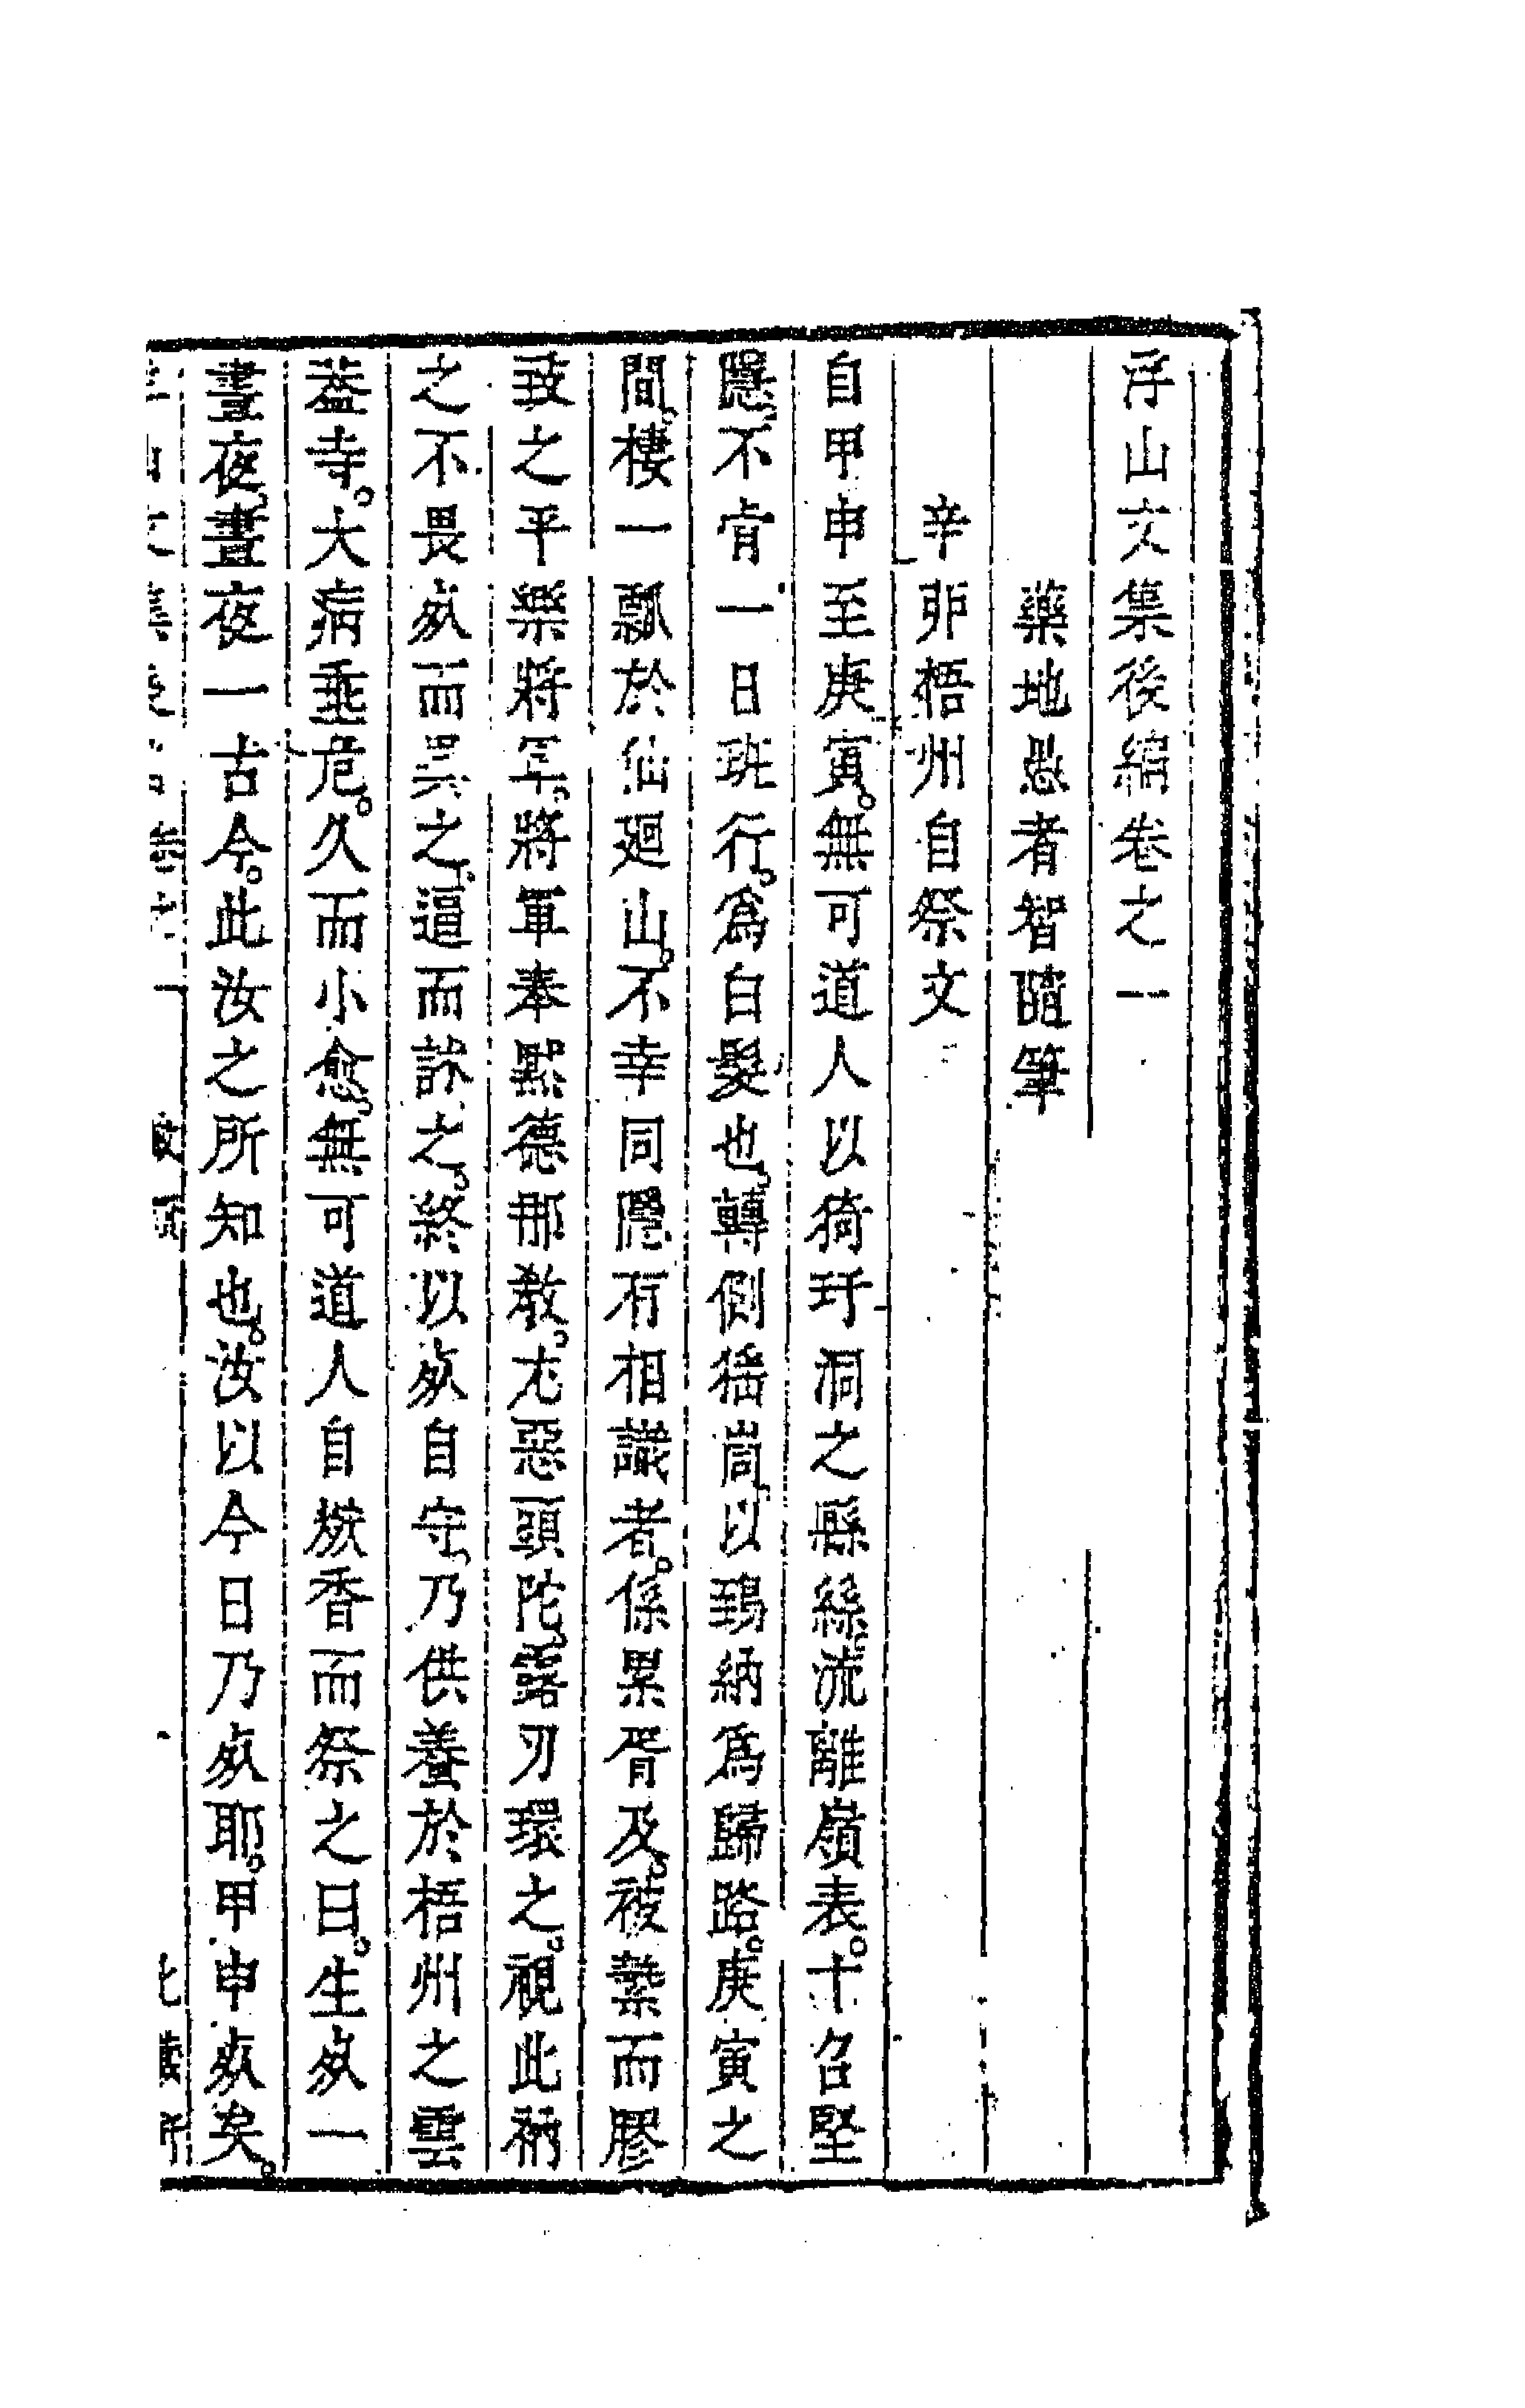 浮山文集後編卷之一
藥地愚者智隨筆
辛卯梧州自祭文
自甲申至庚寅。無可道人以猗玗洞之縣絲流離嶺表。十召堅
隱、不肯一日班行。為白髮也、轉側猺峝、以鶉衲為歸路。庚寅之
間、棲一瓢於仙廻山。不幸同隱有相識者。係累胥及。被縶而膠
致之平樂將軍。將軍奉默德那教。尤惡頭陀、露刃環之。視此衲
之不畏死而異之、逼而訹之、終以死自守、乃供養於梧州之雲
葢寺。大病垂危。久而小愈、無可道人自焚香而祭之曰。生死一
晝夜、晝夜一古今。此汝之所知也。汝以今日乃死耶。甲申死矣。